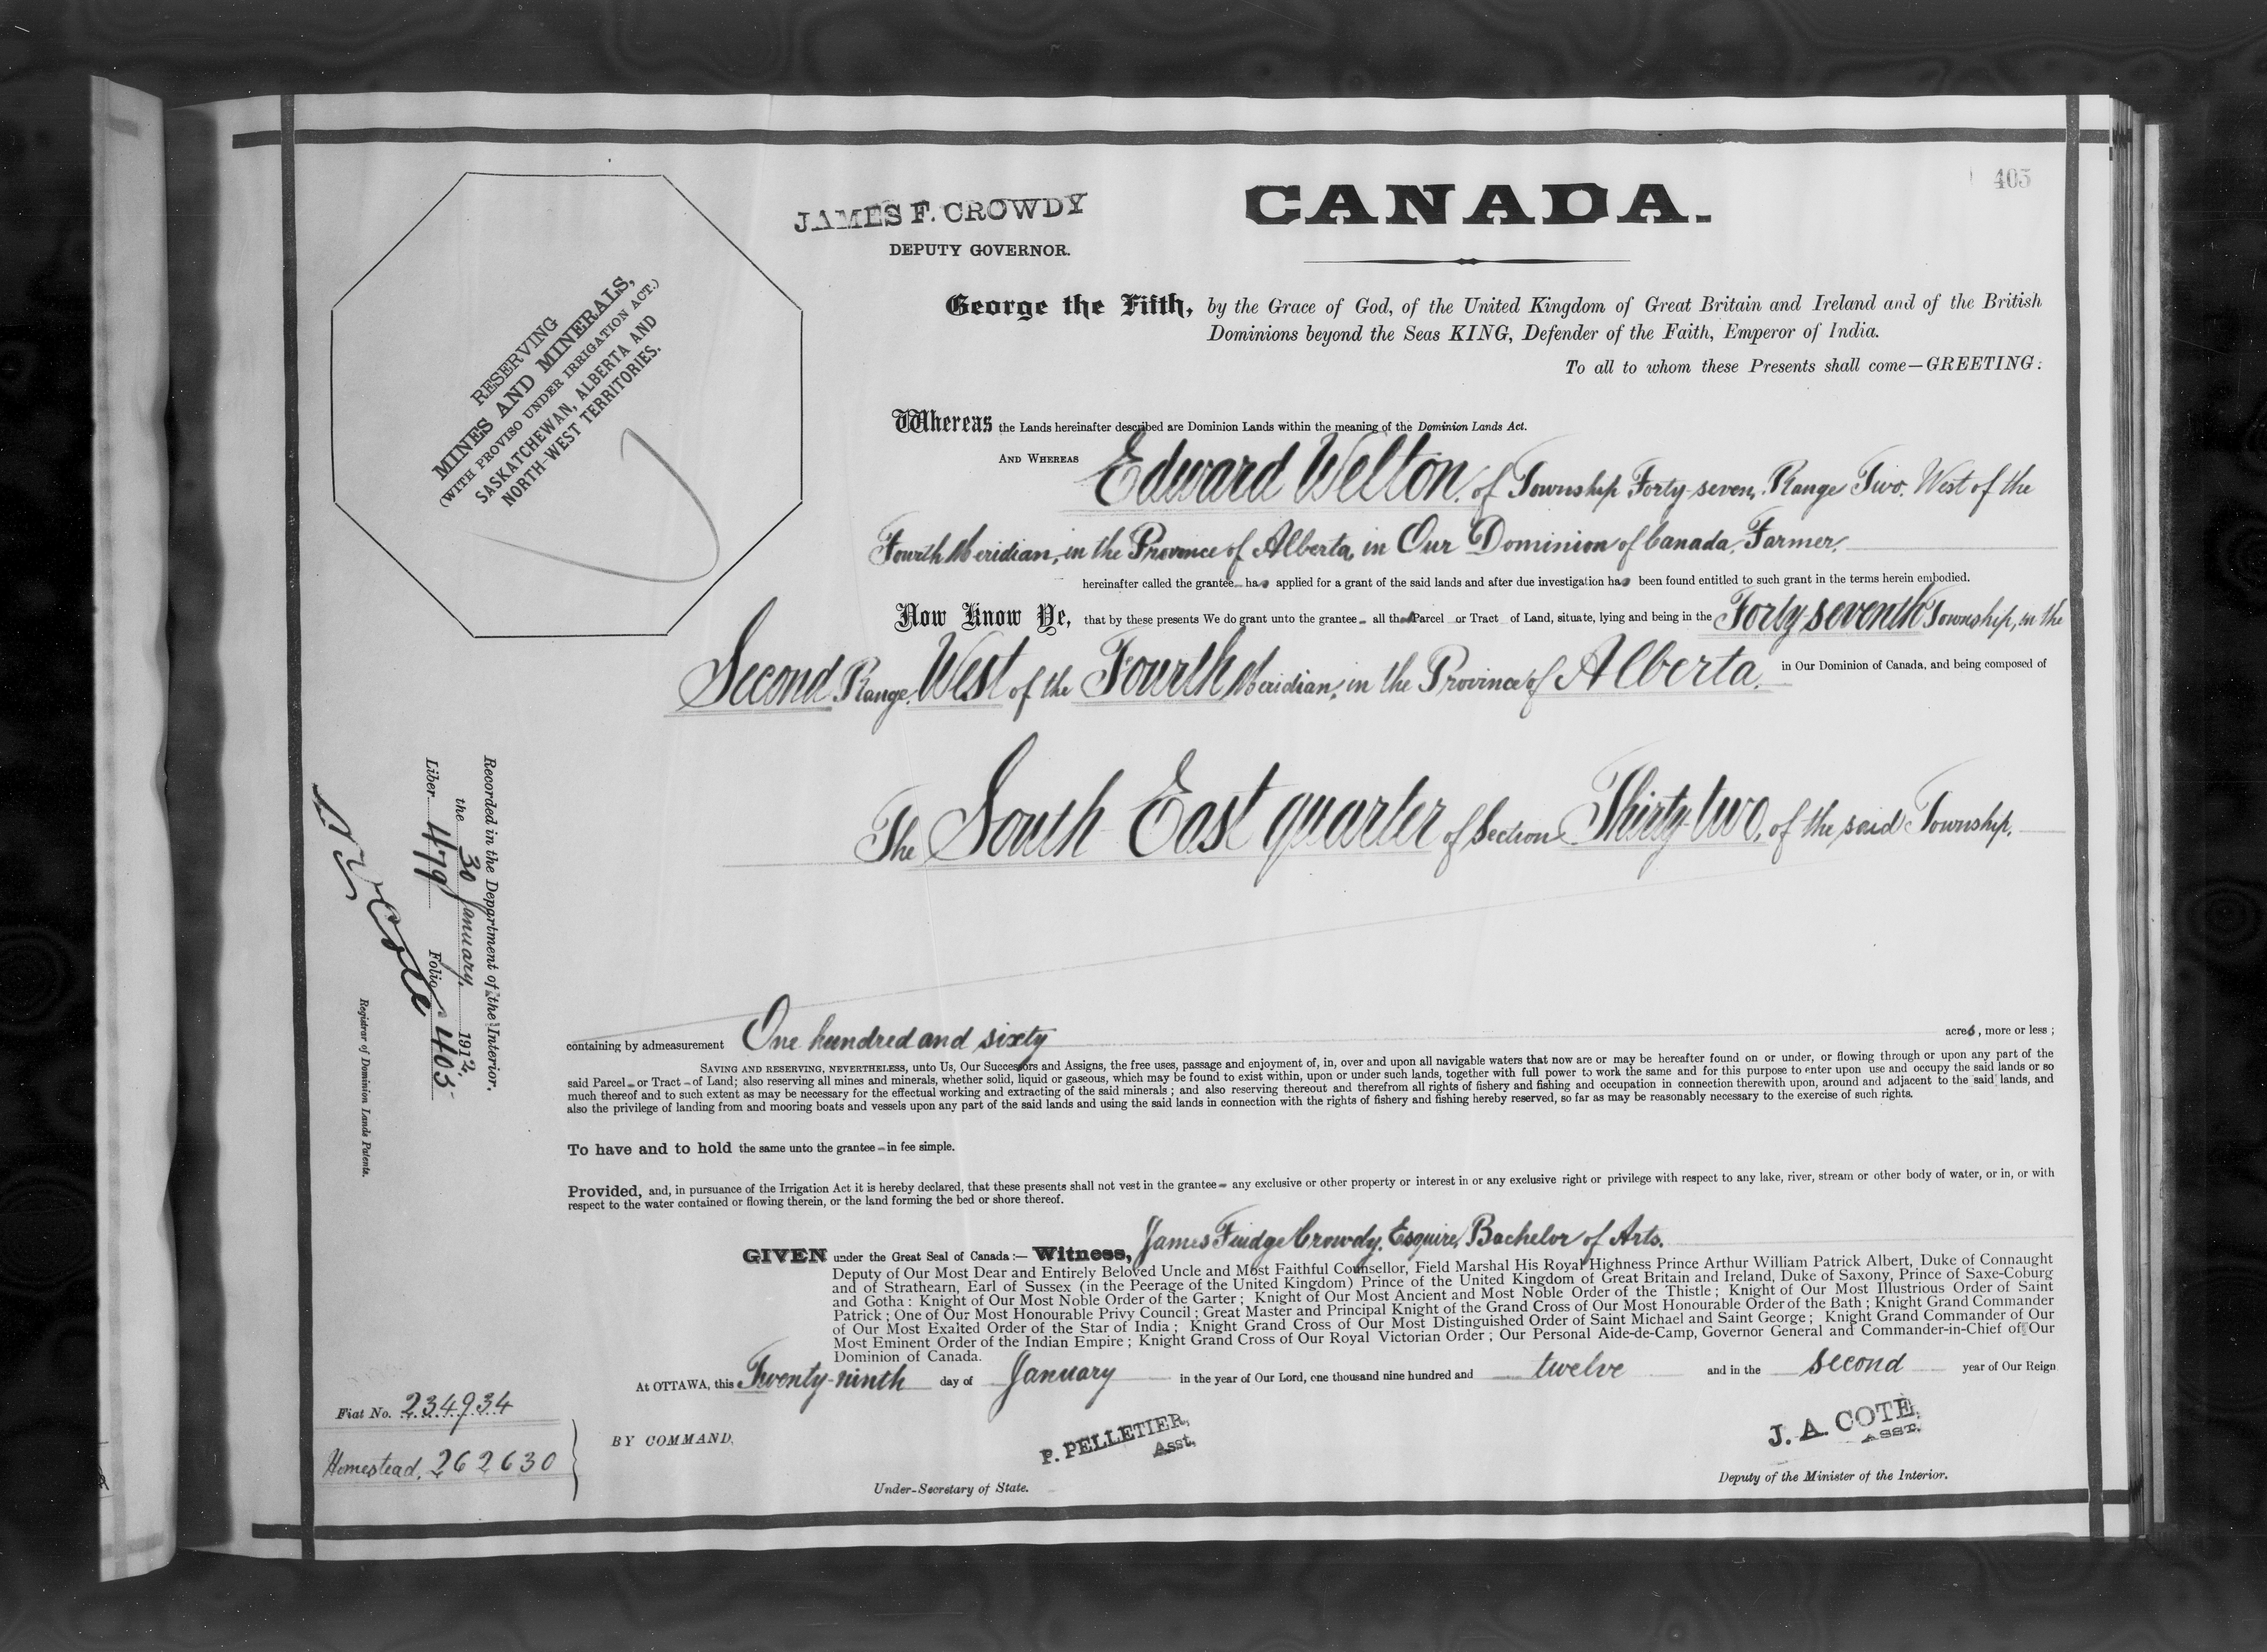 405
CANADA.
JAMES F. CROWDY
DEPUTY GOVERNOR.
RESERVING
MINES AND MINERALS,
(WITH PROVISO UNDER IRRIGATION ACT.)
SASKATCHEWAN, ALBERTA AND
NORTH-WEST TERRITORIES.
George the Fifth, by the Grace of God, of the United Kingdom of Great Britain and Ireland and of the British
Dominions beyond the Seas KING, Defender of the Faith, Emperor of India.
To all to whom these Presents shall come—GREETING:
Whereas the Lands hereinafter described are Dominion Lands within the meaning of the Dominion Lands Act.
AND WHEREAS Edward Welton, of Township Forty-seven, Range Two, West of the
Fourth Meridian, in the Province of Alberta, in Our Dominion of Canada, Farmer,
hereinafter called the grantee has applied for a grant of the said lands and after due investigation has been found entitled to such grant in the terms herein embodied.
Now Know Ye, that by these presents We do grant unto the grantee all that Parcel or Tract of Land, situate, lying and being in the Forty-seventh Township, in the
Second Range, West of the Fourth Meridian, in the Province of Alberta, in Our Dominion of Canada, and being composed of
The South East quarter of Section Thirty-two, of the said Township,
containing by admeasurement One hundred and sixty acres, more or less;
SAVING AND RESERVING, NEVERTHELESS, unto Us, Our Successors and Assigns, the free uses, passage and enjoyment of, in, over and upon all navigable waters that now are or may be hereafter found on or under, or flowing through or upon any part of the
said Parcel or Tract of Land; also reserving all mines and minerals, whether solid, liquid or gaseous, which may be found to exist within, upon or under such lands, together with full power to work the same and for this purpose to enter upon use and occupy the said lands or so
much thereof and to such extent as may be necessary for the effectual working and extracting of the said minerals; and also reserving thereout and therefrom all rights of fishery and fishing and occupation in connection therewith upon, around and adjacent to the said lands, and
also the privilege of landing from and mooring boats and vessels upon any part of the said lands and using the said lands in connection with the rights of fishery and fishing hereby reserved, so far as may be reasonably necessary to the exercise of such rights.
To have and to hold the same unto the grantee in fee simple.
Provided, and, in pursuance of the Irrigation Act it is hereby declared, that these presents shall not vest in the grantee any exclusive or other property or interest in or any exclusive right or privilege with respect to any lake, river, stream or other body of water, or in, or with
respect to the water contained or flowing therein, or the land forming the bed or shore thereof.
GIVEN under the Great Seal of Canada:— Witness, James Fudge Crowdy, Esquire, Bachelor of Arts.
Deputy of Our Most Dear and Entirely Beloved Uncle and Most Faithful Counsellor, Field Marshal His Royal Highness Prince Arthur William Patrick Albert, Duke of Connaught
and of Strathearn, Earl of Sussex (in the Peerage of the United Kingdom) Prince of the United Kingdom of Great Britain and Ireland, Duke of Saxony, Prince of Saxe-Coburg
and Gotha: Knight of Our Most Noble Order of the Garter; Knight of Our Most Ancient and Most Noble Order of the Thistle; Knight of Our Most Illustrious Order of Saint
Patrick; One of Our Most Honourable Privy Council; Great Master and Principal Knight of the Grand Cross of Our Most Honourable Order of the Bath; Knight Grand Commander
of Our Most Exalted Order of the Star of India; Knight Grand Cross of Our Most Distinguished Order of Saint Michael and Saint George; Knight Grand Commander of Our
Most Eminent Order of the Indian Empire; Knight Grand Cross of Our Royal Victorian Order; Our Personal Aide-de-Camp, Governor General and Commander-in-Chief of Our
Dominion of Canada.
At OTTAWA, this Twenty-ninth day of January in the year of Our Lord, one thousand nine hundred and twelve and in the second year of Our Reign
Fiat No. 234934
Homestead, 262630
BY COMMAND,
P. PELLETIER,
Asst.
Under-Secretary of State.
J. A. COTE,
ASST.
Deputy of the Minister of the Interior.
Recorded in the Department of the Interior.
the 30 January, 1912,
Liber 479 Folio 405
Registrar of Dominion Lands Patents.